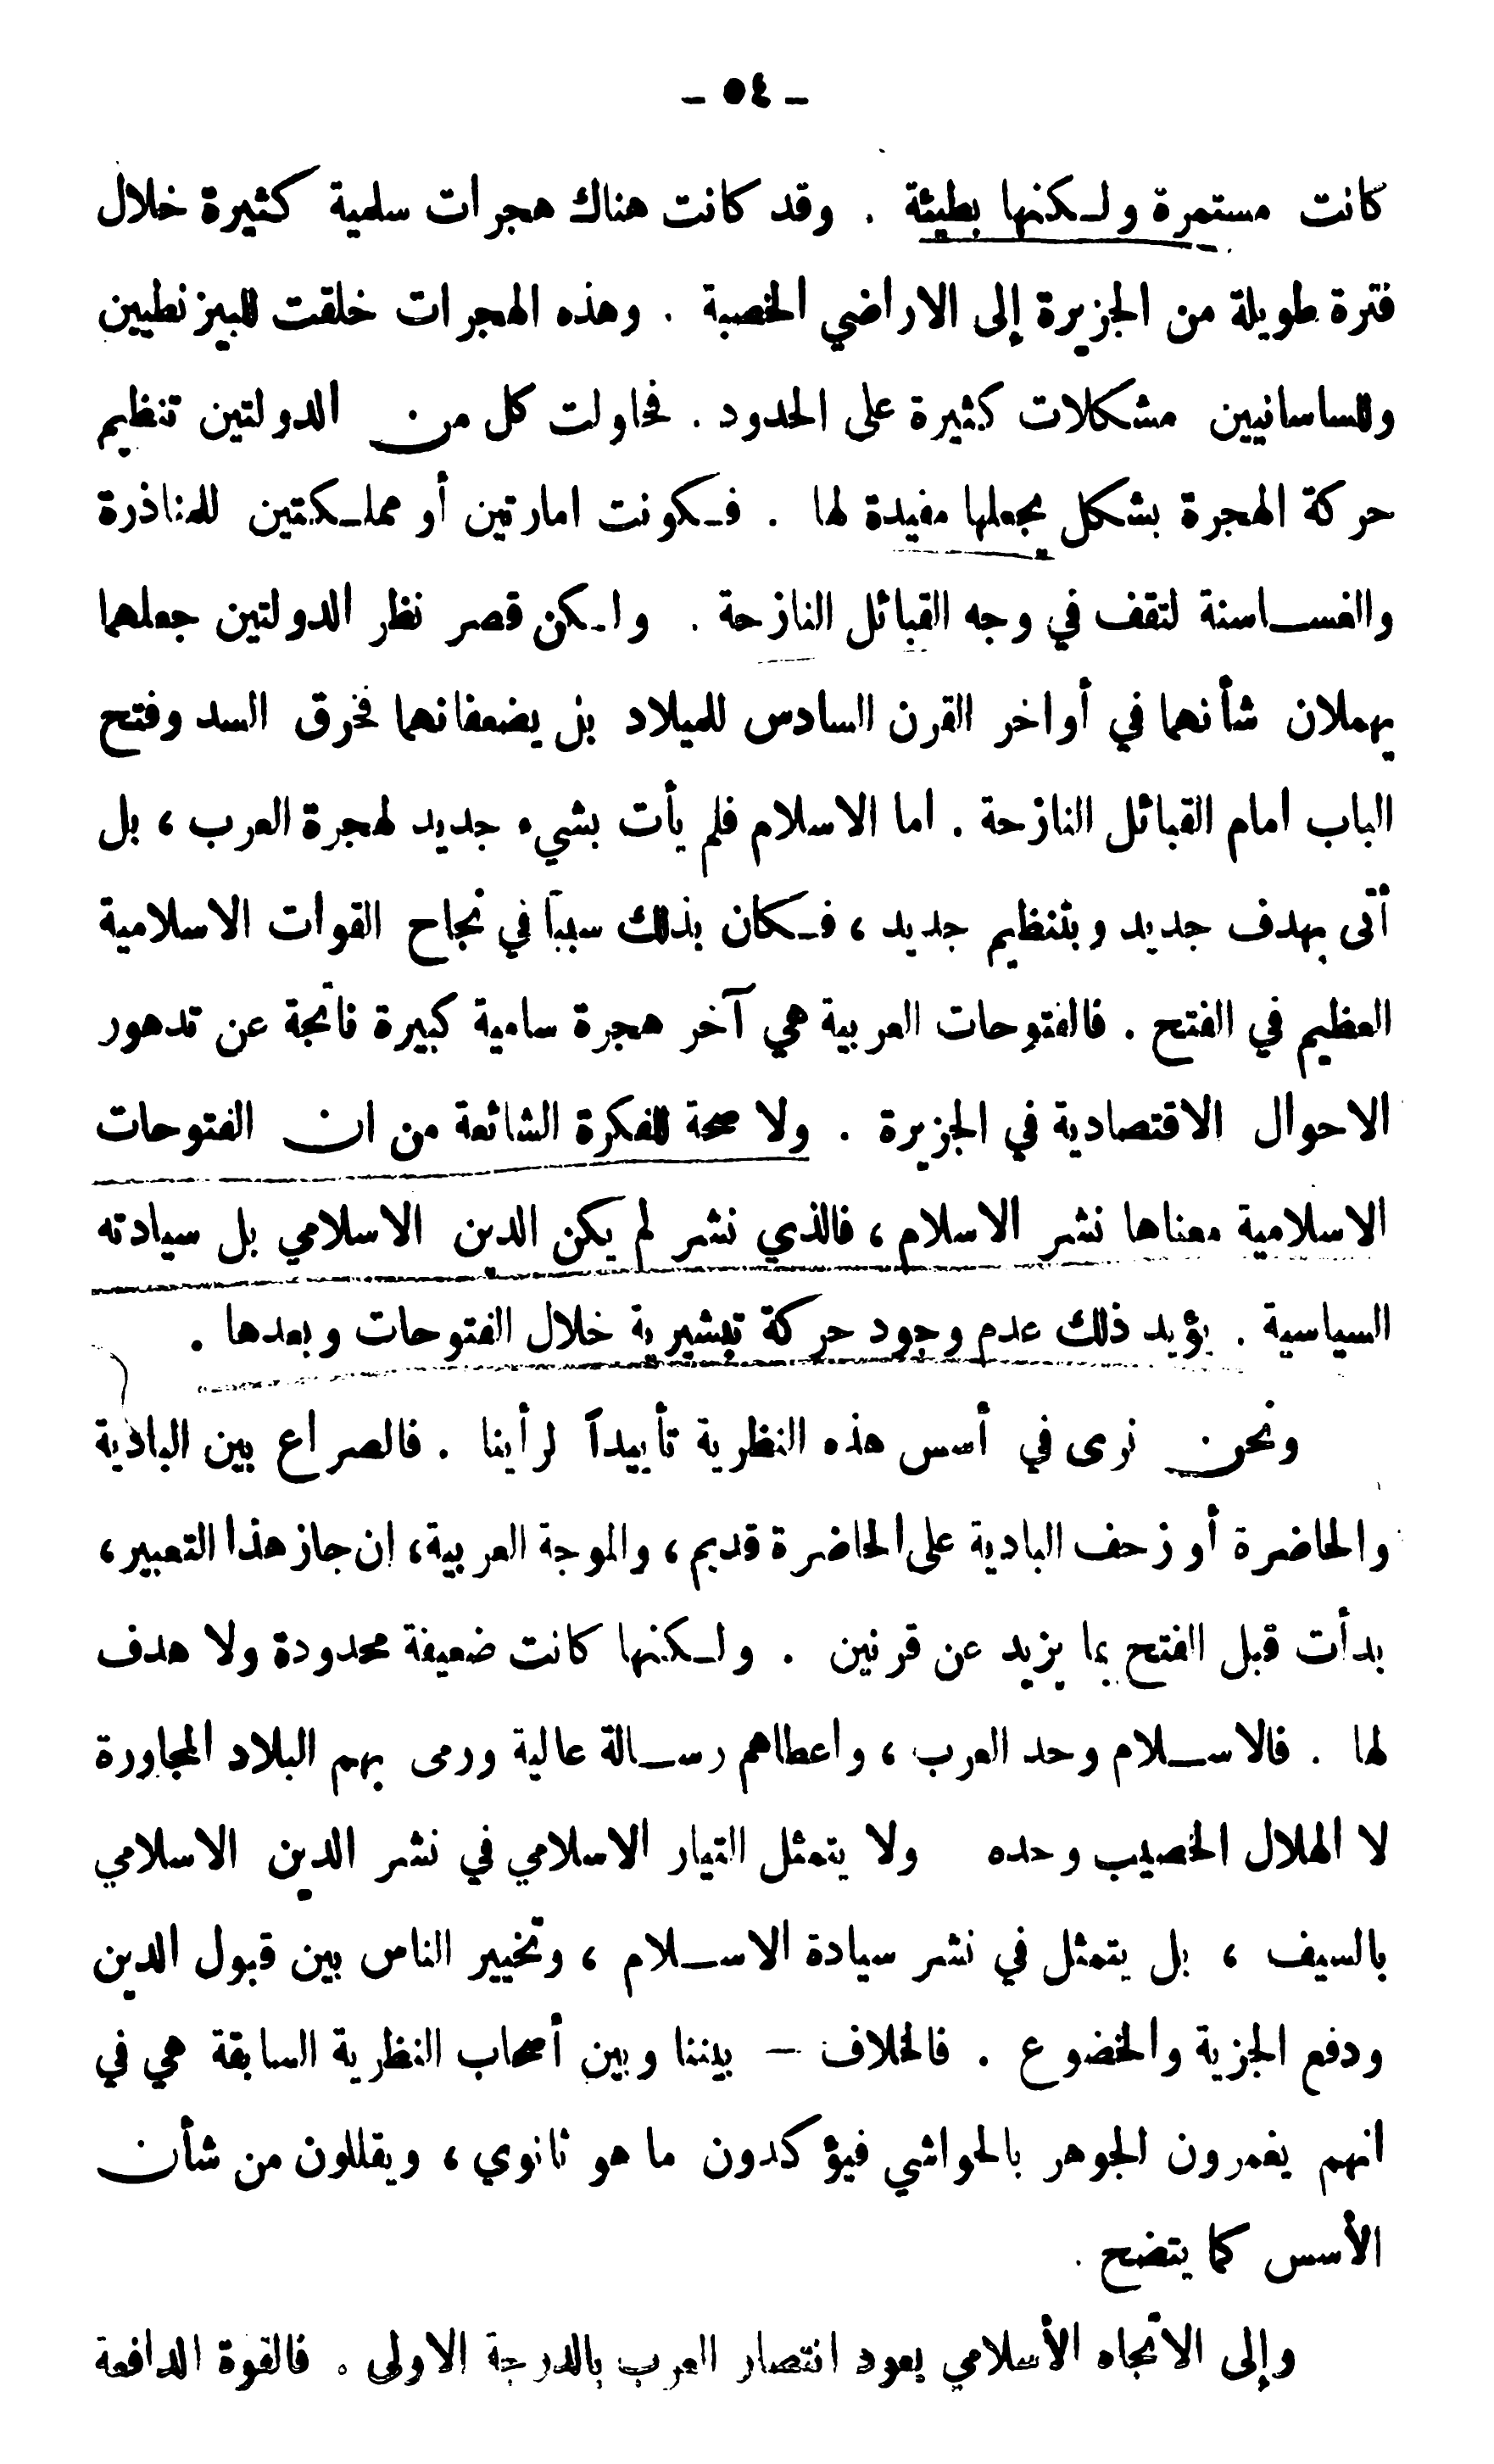 - ٥٤ -
كانت مستمرة ولكنها بطيئة . وقد كانت هناك هجرات سلمية كثيرة خلال
فترة طويلة من الجزيرة إلى الاراضي الخصبة . وهذه الهجرات خلقت للبيزنطيين
وللساسانيين مشكلات كثيرة على الحدود . فحاولت كل من الدولتين تنظيم
حركة الهجرة بشكل يجعلها مفيدة لها . فكونت امارتين أو مملكتين للمناذرة
والغساسنة لتقف في وجه القبائل النازحة . ولكن قصر نظر الدولتين جعلهما
يهملان شأنهما في أواخر القرن السادس للميلاد بل يضعفانهما فخرق السد وفتح
الباب امام القبائل النازحة . اما الاسلام فلم يأت بشيء جديد لهجرة العرب ، بل
أتى بهدف جديد وبتنظيم جديد ، فكان بذلك سبباً في نجاح القوات الاسلامية
العظيم في الفتح . فالفتوحات العربية هي آخر هجرة سامية كبيرة ناتجة عن تدهور
الاحوال الاقتصادية في الجزيرة . ولا صحة للفكرة الشائعة من ان الفتوحات
الاسلامية معناها نشر الاسلام ، فالذي نشر لم يكن الدين الاسلامي بل سيادته
السياسية . يؤيد ذلك عدم وجود حركة تبشيرية خلال الفتوحات وبعدها .
ونحن نرى في أسس هذه النظرية تأييداً لرأينا . فالصراع بين البادية
والحاضرة أو زحف البادية على الحاضرة قديم ، والموجة العربية ، ان جاز هذا التعبير ،
بدأت قبل الفتح بما يزيد عن قرنين . ولكنها كانت ضعيفة محدودة ولا هدف
لها . فالاسلام وحد العرب ، واعطاهم رسالة عالية ورمى بهم البلاد المجاورة
لا الهلال الخصيب وحده ولا يتمثل التيار الاسلامي في نشر الدين الاسلامي
بالسيف ، بل يتمثل في نشر سيادة الاسلام ، وتخيير الناس بين قبول الدين
ودفع الجزية والخضوع . فالخلاف - بيننا وبين أصحاب النظرية السابقة هي في
انهم يغمرون الجوهر بالحواشي فيؤكدون ما هو ثانوي ، ويقللون من شأن
الأسس كما يتضح .
وإلى الاتجاه الأسلامي يعود انتصار العرب بالدرجة الاولى . فالقوة الدافعة